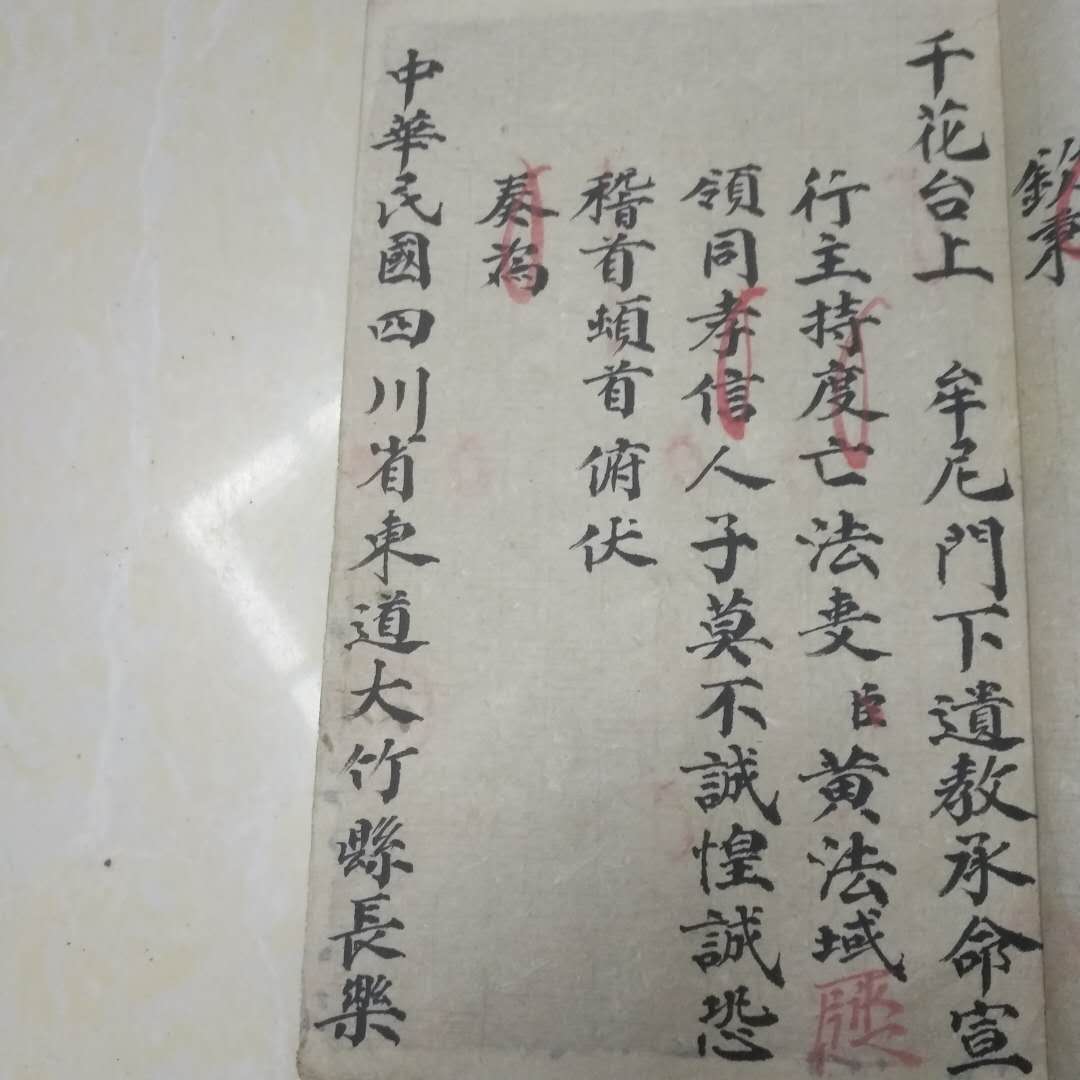 欽奉
千花台上 牟尼門下遺教承命宣
行主持度亡法吏臣黄法域
領同孝信人子莫不誠惶誠恐
稽首頓首俯伏
奏為
中華民國四川省東道大竹縣長樂